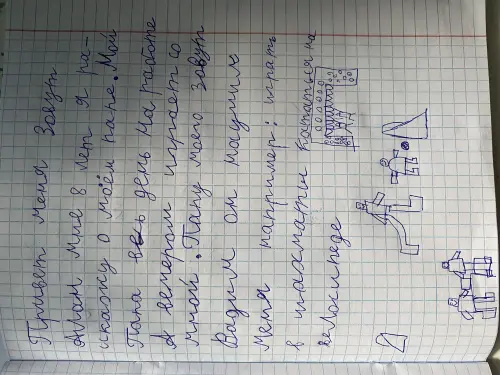 Привет меня Зовут
Алан мне 8 лет я ра-
сскажу о моём папе. Мой
Папа весь день на работе
А вечером играет со
мной. Папу моего зовут
Вадим он научил
меня например: играть
в шахматы Кататься на
велосипеде